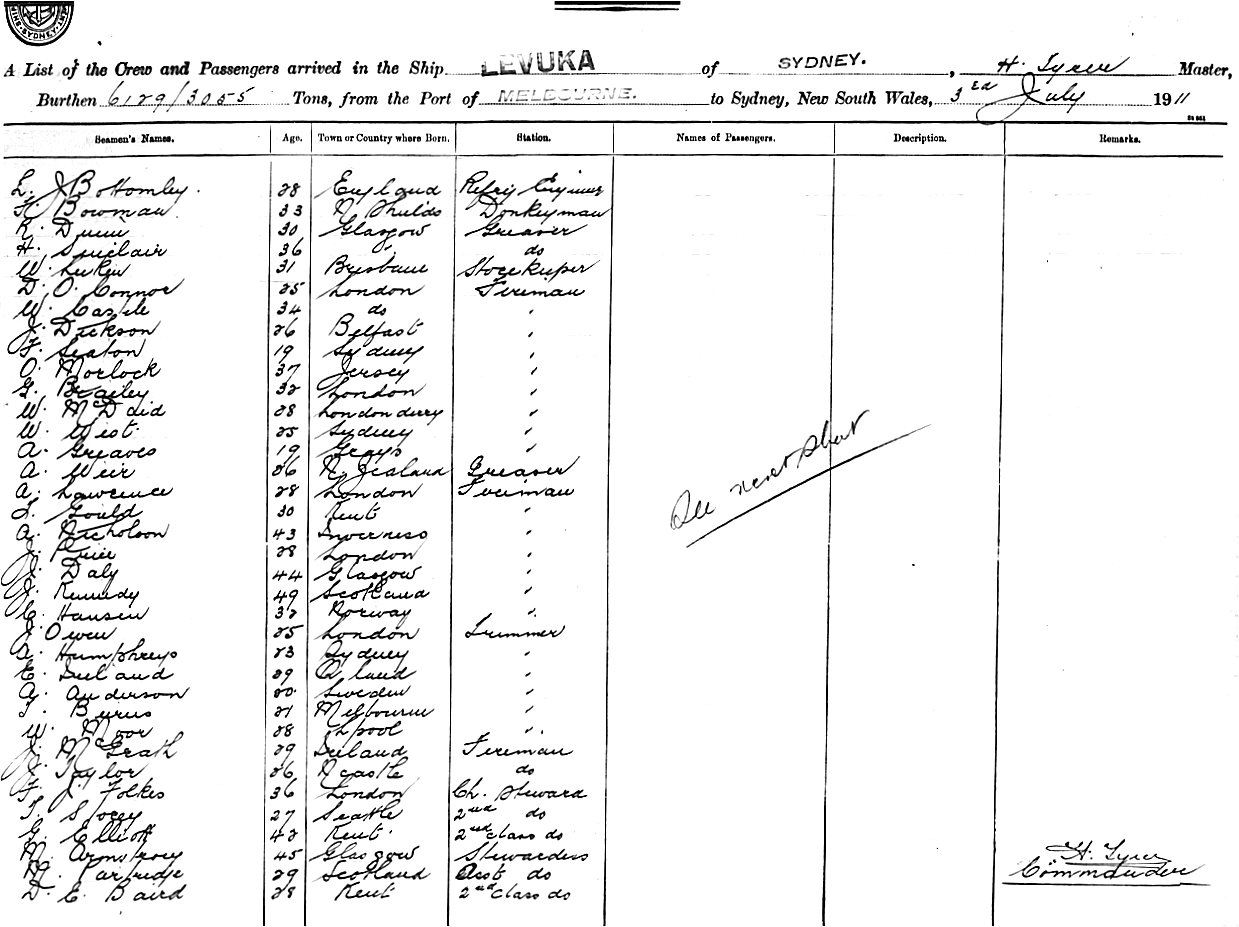 SYDNEY
A List of the Crew and Passengers arrived in the Ship LEVUKA of SYDNEY. , H. Tyrer Master,
Burthen 6129/3055 Tons, from the Port of MELBOURNE. to Sydney, New South Wales, 3rd July 1911
Seamen's Names. Age. Town or Country where Born. Station. Names of Passengers. Description. Remarks.
L. J Bottomley. 28 England Refrig Engineer
Bowman 33 N Shields Donkeyman
R. Dunn 30 Glasgow Greaser
H. Sinclair 36 " do
W. 31 Brisbane Storekeeper
D. O. Connor 25 London Fireman
W. Castle 34 do "
J. Dickson 26 Belfast "
F. Seaton 19 Sydney "
O. Morlock 37 Jersey "
G. Brailey 32 London "
W. McDaid 28 Londonderry "
W. West 25 Sydney "
A. Greaves 19 Grays "
A. Weir 26 N. Zealand Greaser
A. Lawrence 28 London Fireman
Gould 30 Kent "
A. Nicholson 43 Inverness "
J. 28 London "
J. Daly 44 Glasgow "
J. Kennedy 49 Scotland "
C. Hansen 32 Norway "
J Owen 25 London Trimmer
A. Humphreys 23 Sydney "
E. Ireland 29 Q land "
A. Anderson 20 Sweden "
T. Burns 21 Melbourne "
W. Moor 28 L pool "
J. McGrath 29 Ireland Fireman
J. Taylor 26 N castle do
F. J. Folkes 36 London Ch. Steward
27 Seattle 2nd do
G. Elliott 42 Kent 2nd class do
M. Armstrong 45 Glasgow Stewardess
M. Partridge 29 Scotland Asst do
D. E. Baird 28 Kent 2nd Class do
See next sheet
H. Tyrer
Commander